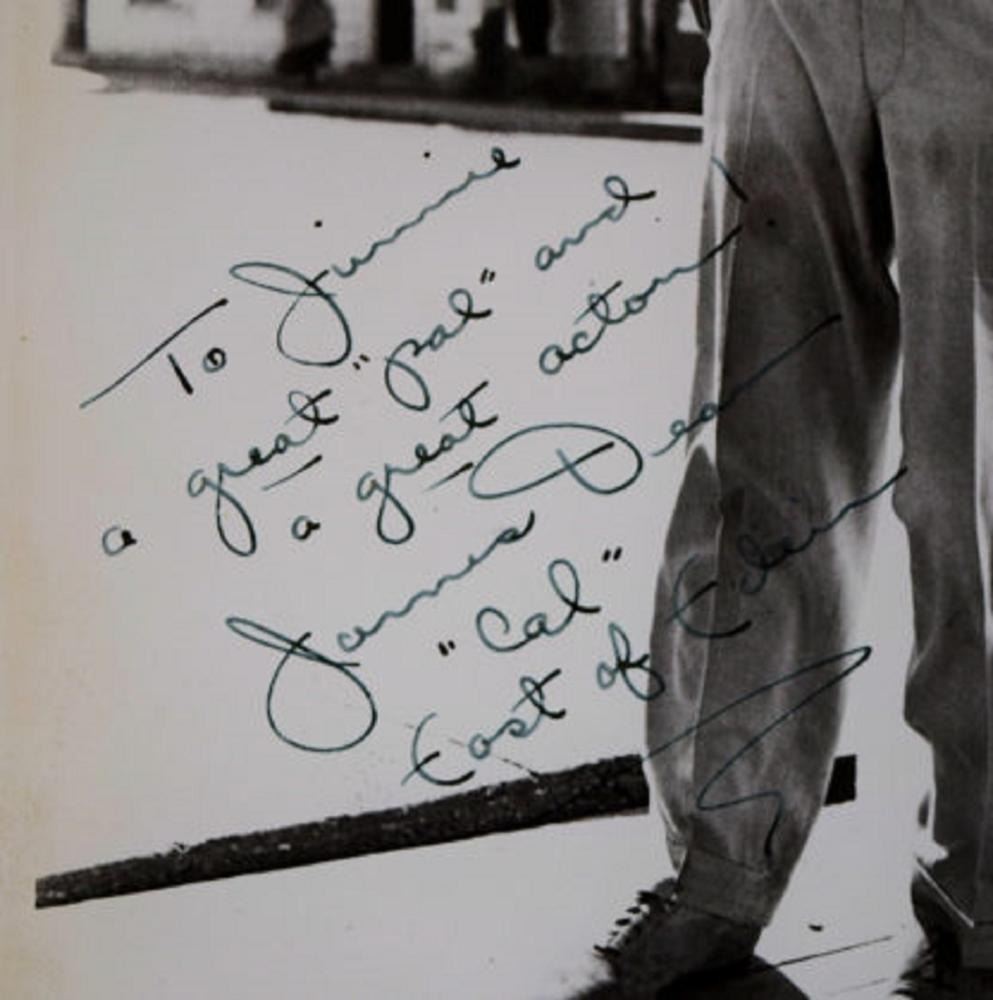 To Jimmie
a great "pal" and
a great actor!
James Dean
"Cal"
East of Eden